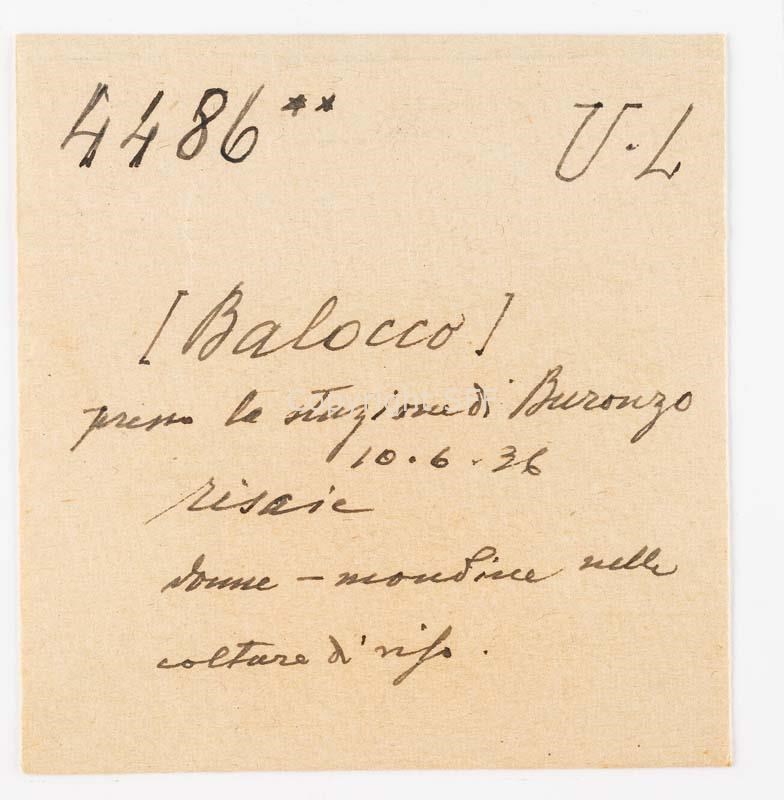 4486** U.L
[Balocco]
presso la stazione di Buronzo
10.6.36
risaie
donne - mondine nelle
colture di riso.